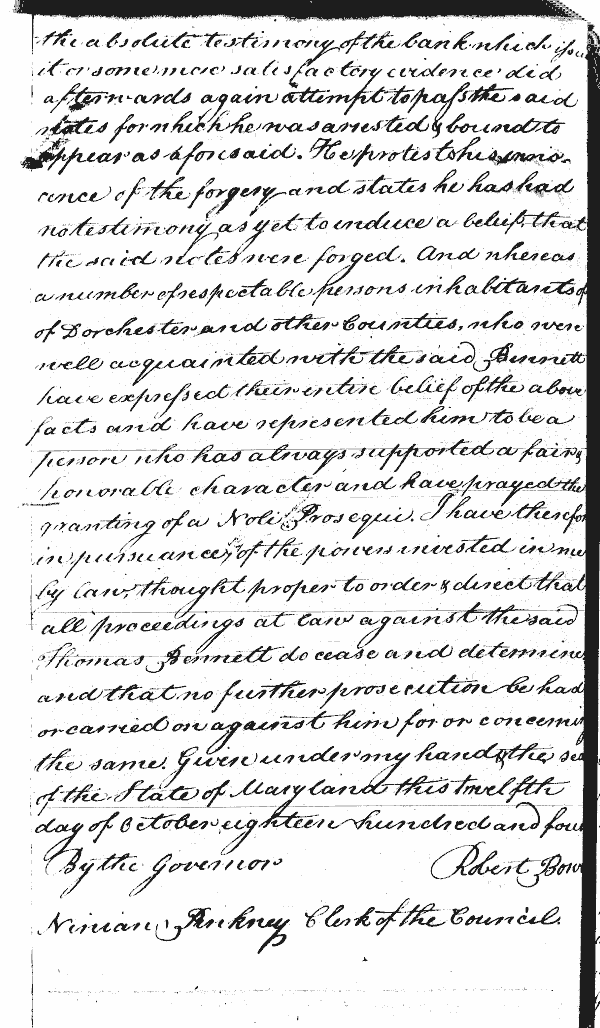 the absolute testimony of the bank which
it or some more satisfactory evidence did
afterwards again attempt to pass the said
notes for which he was arrested & bound to
appear as aforesaid. He protests his inno-
cence of the forgery and states he has had
no testimony as yet to induce a belief, that
the said notes were forged. And whereas
a number of respectable persons inhabitants of
of Dorchester and other Counties, who were
well acquainted with the said Bennett
have expressed their entire belief of the above
facts and have represented him to be a
person who has always supported a fair &
honorable character and have prayed the
granting of a Noli Prosequi. I have therefor
in pursuance, of the powers invested in me
by law, thought proper to order & direct that
all proceedings at law against the said
Thomas Bennett do cease and determine,
and that no further prosecution be had
or carried on against him for or concerni
the same. Given under my hand & the sea
of the State of Maryland this twelfth
day of October eighteen hundred and four
By the Governor Robert Bow
Ninian Pinkney Clerk of the Council.